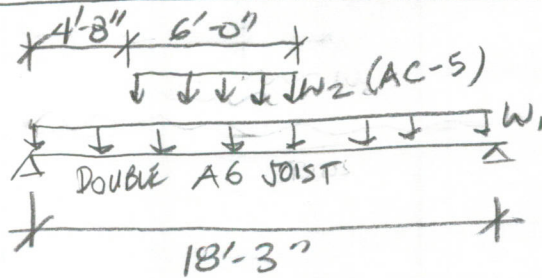 4'-8" 6'-0"
W2 (AC-5)
W1
DOUBLE A6 JOIST
18'-3"